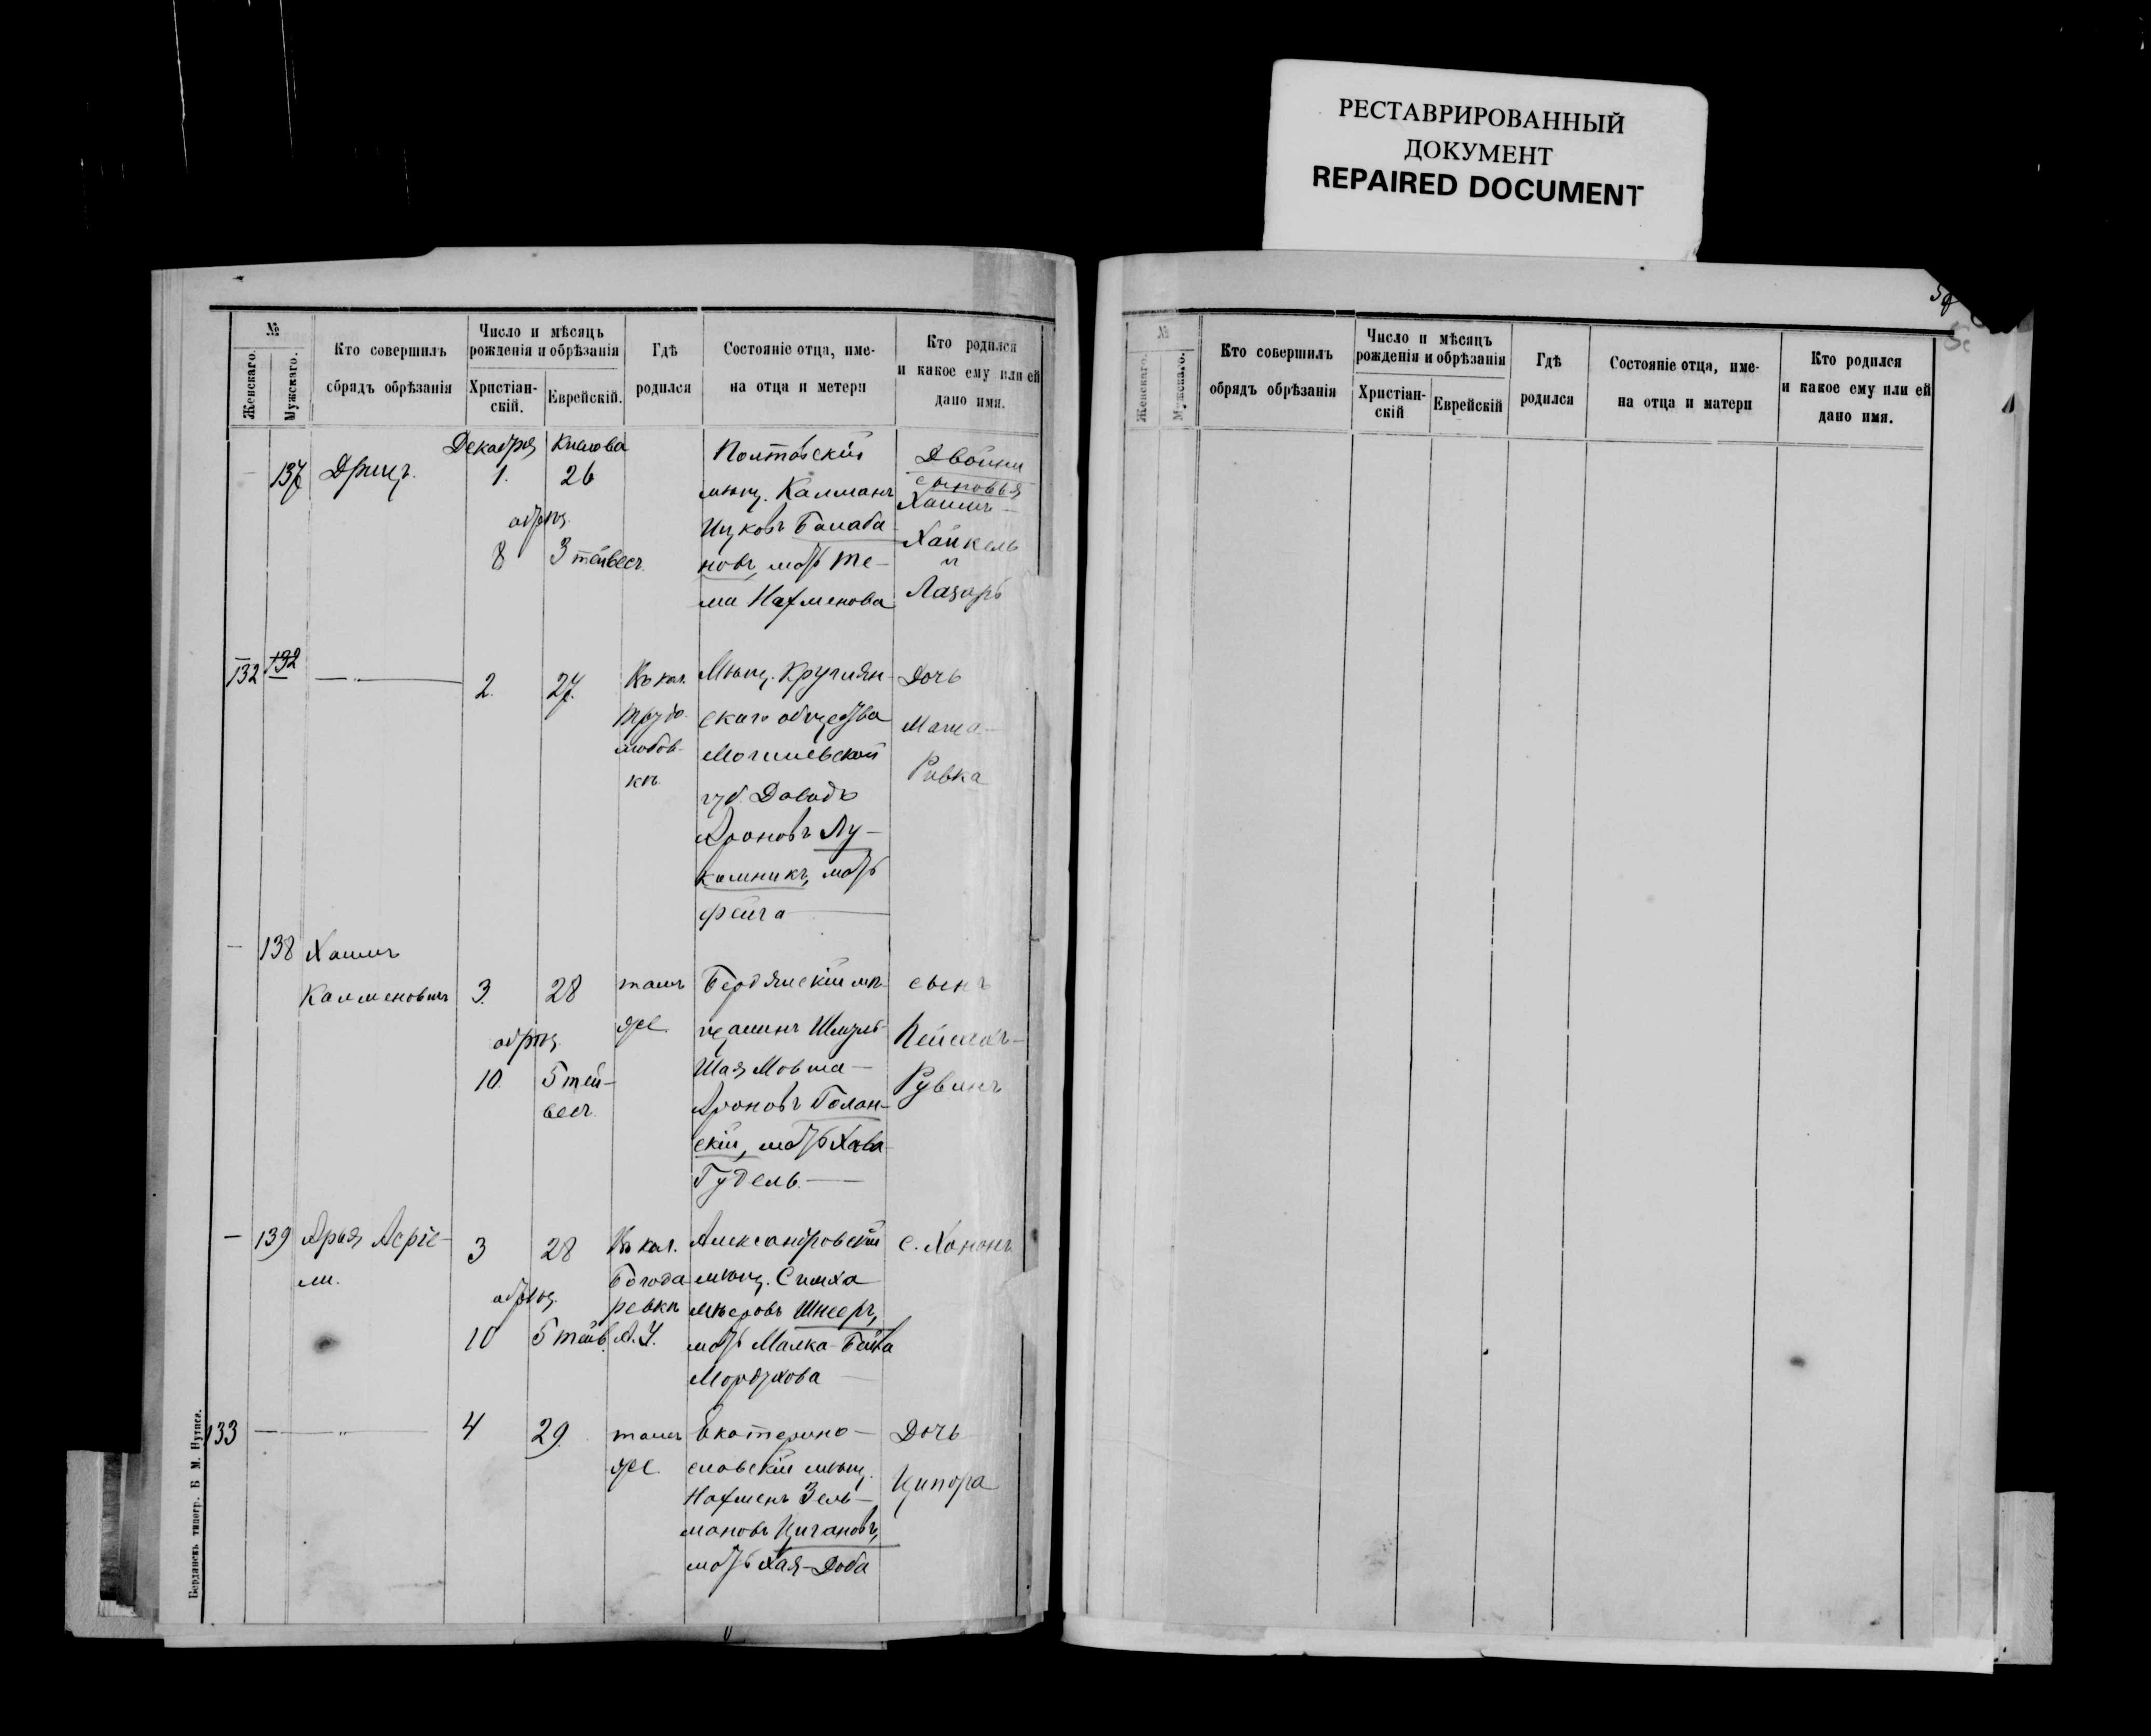 РЕСТАВРИРОВАННЫЙ
ДОКУМЕНТ
REPAIRED DOCUMENT
№
Женскаго.
Мужскаго.
Кто совершилъ
сбрядъ обрѣзанія
Число и мѣсяцъ
рожденія и обрѣзанія
Христіан-
скій.
Еврейскій.
Гдѣ
родился
Состояніе отца, име-
на отца и метери
Кто родился
и какое ему или ей
дано имя.
Декабря Кислова
137 Дриц.
1. 26
обрѣз.
8 3 тейвесъ.
Полтавскій
мѣщ. Калманъ
Ицковъ Балаба-
новъ, мать Те-
ма Нахменова
Двойни
сыновья
Хаимъ-
Хайкель
и
Лазарь
132 132
2. 27.
Въ кол.
Трудо-
любов-
кѣ
Мѣщ. Круглян-
скаго общества
Могилевской
губ. Давидъ
Ароновъ Лу-
комникъ, мать
Фейга
Дочь
Маша-
Ривка
138 Хаимъ
Калменовичъ
3. 28
обрѣз.
10. 5 тей-
весъ.
тамъ
же.
Бердянскій мѣ-
щанинъ Шмуль-
Шая Мовша-
Ароновъ Голан-
скій, мать Хава-
Гудель.
сынъ
Пейсахъ-
Рувинъ
139 Арья Асріе-
ли.
3 28
обрѣз.
10 5 тейв.
Въ кол.
Богода-
ревкѣ
А. У.
Александровскій
мѣщ. Симха
Мѣеровъ Шнееръ,
мать Малка-Бейла
Мордухова
С. Хононъ
133
4 29.
тамъ
же.
Екатерино-
славскій мѣщ.
Нахменъ Зель-
мановъ Цигановъ,
мать Хая-Доба
Дочь
Ципора
Бердянскъ типогр. Б М.
№
Женскаго.
Мужскаго.
Кто совершилъ
обрядъ обрѣзанія
Число и мѣсяцъ
рожденія и обрѣзанія
Христіан-
скій
Еврейскій
Гдѣ
родился
Состояніе отца, име-
на отца и матери
Кто родился
и какое ему или ей
дано имя.